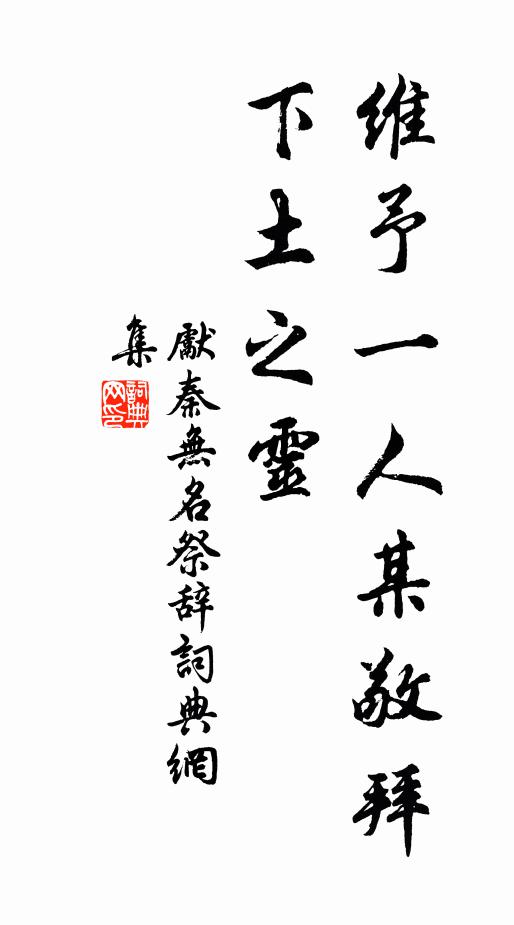 維予一人某敬拜
下土之靈
獻秦無名祭辞詞典網
集
詞典
网印